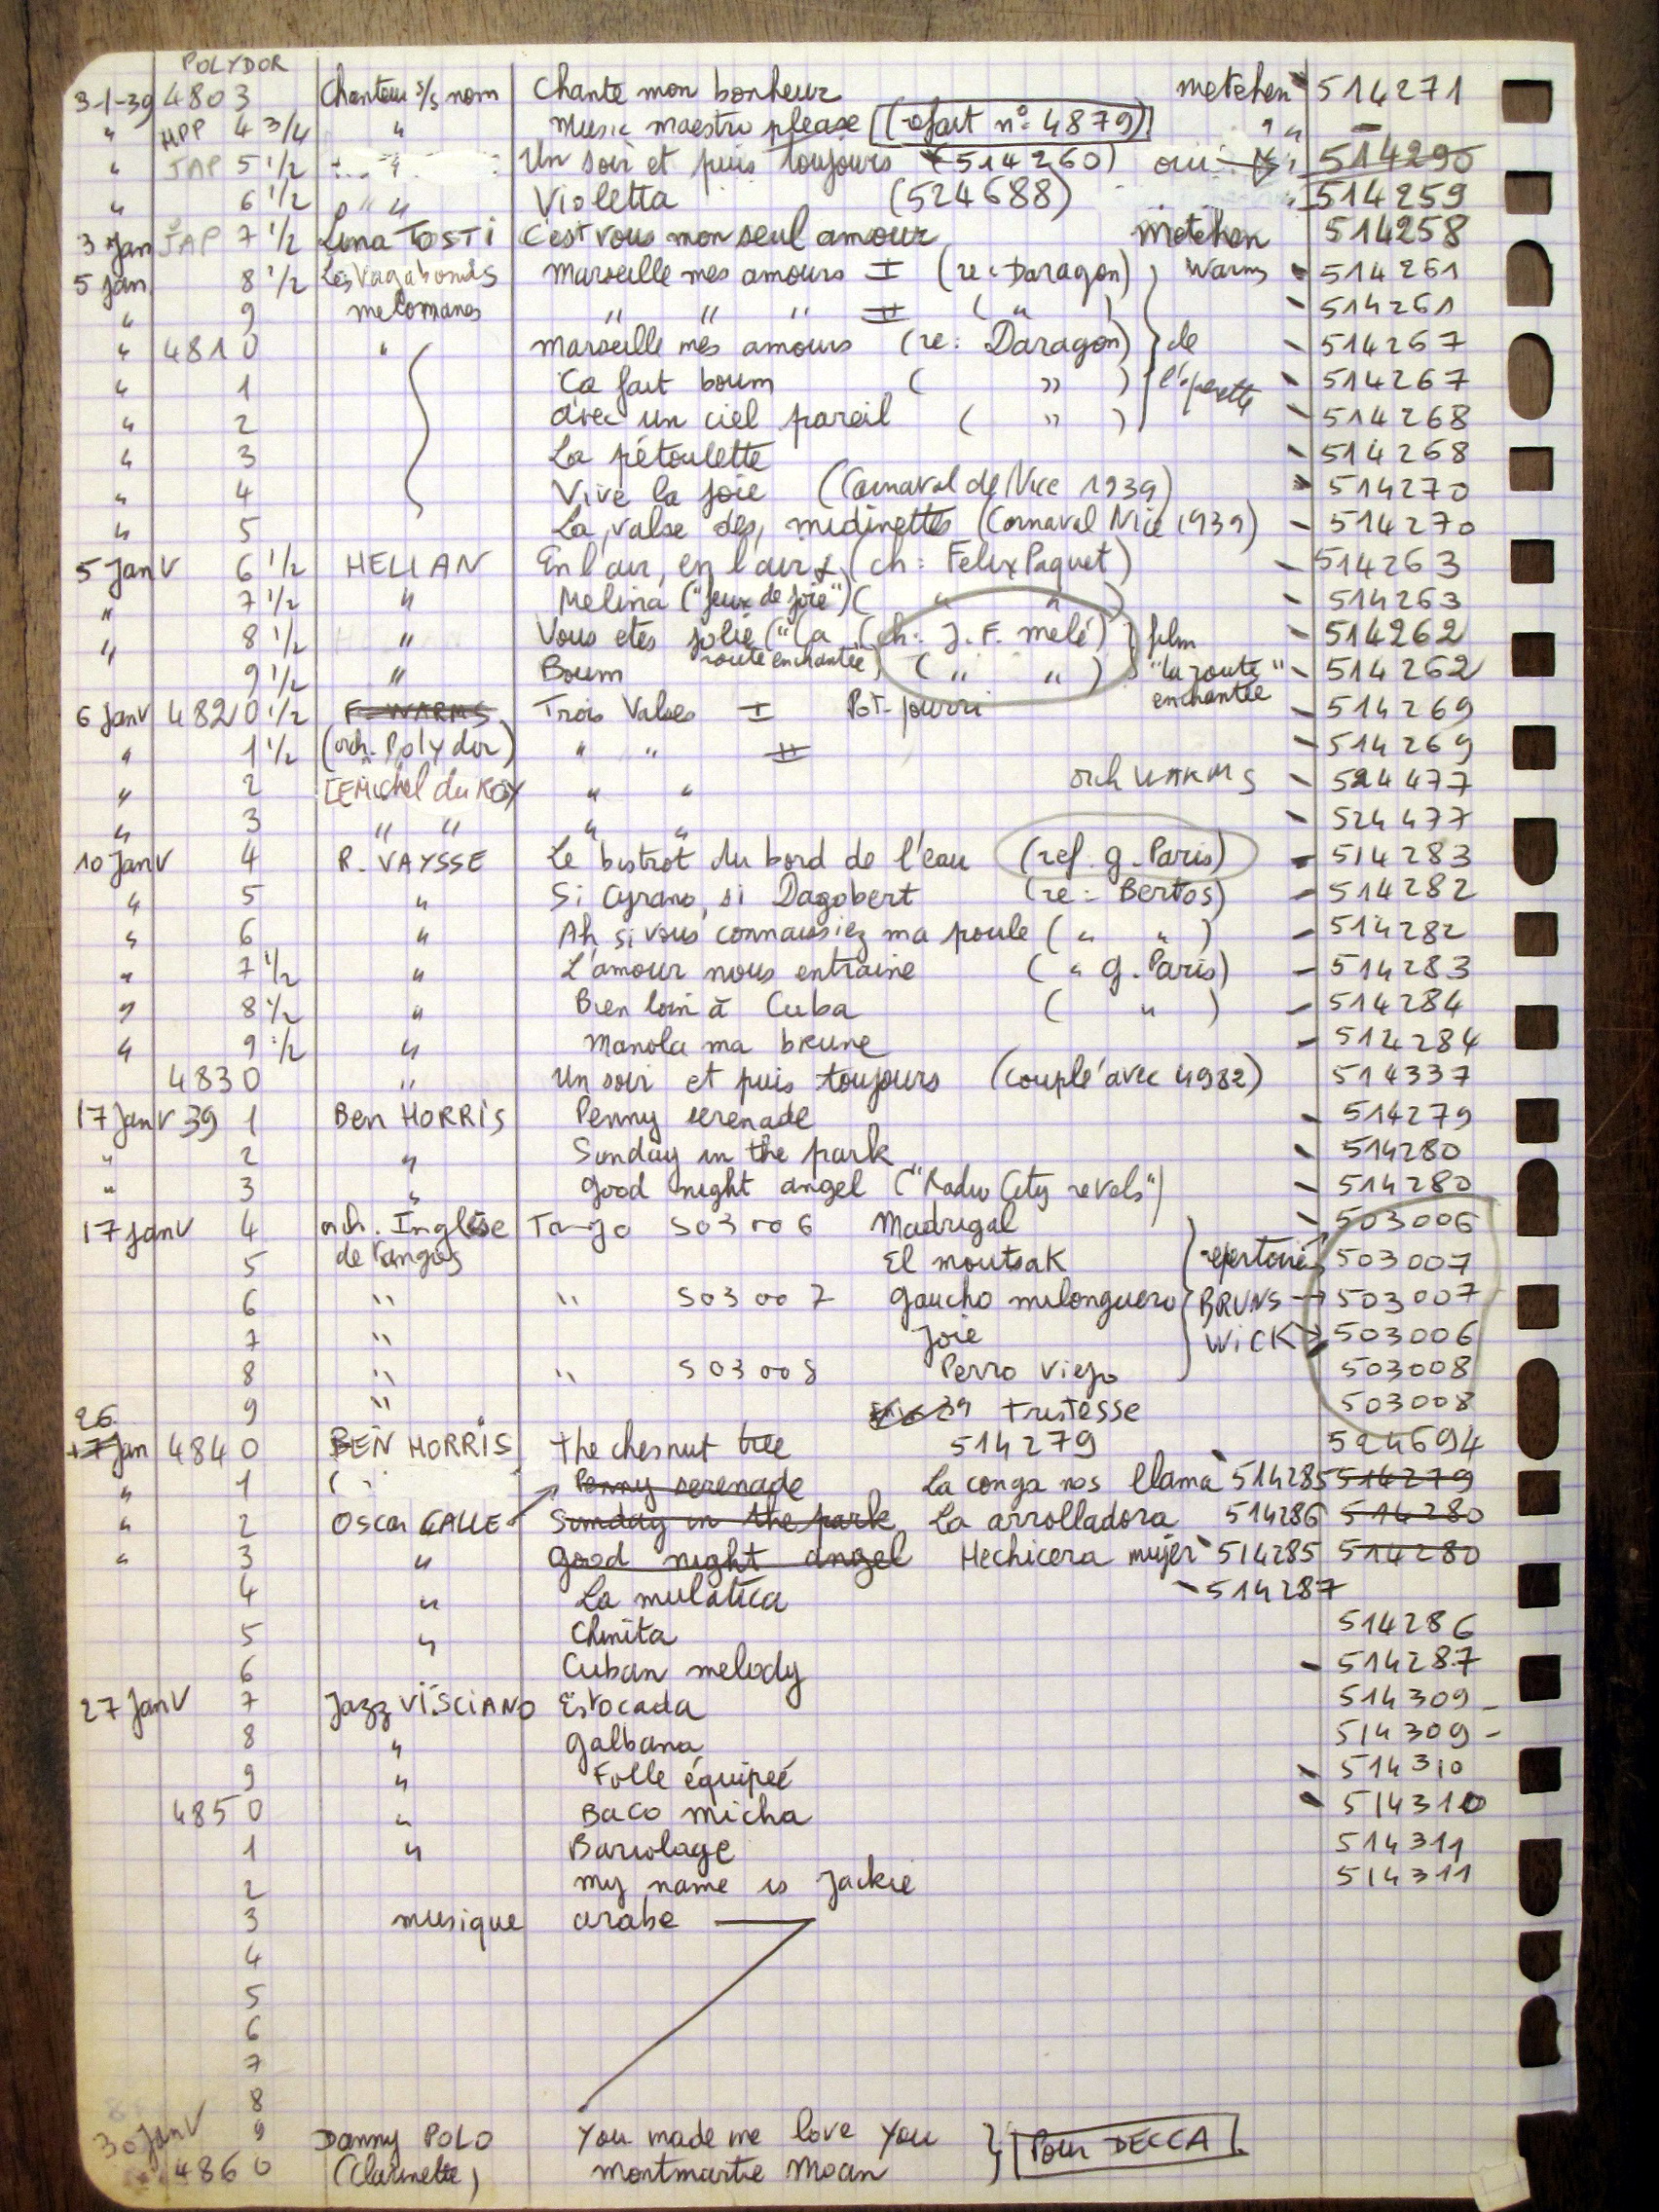 POLYDOR
3-1-39 4803 Chanteur s/s nom Chante mon bonheur Metehen 514271
" HPP 4 3/4 " Music maestro please (refait n° 4879) " " –
" JAP 5 1/2 " Un soir et puis toujours (514260) oui 514290
" 6 1/2 " " Violetta (524688) 514259
3 Jan JAP 7 1/2 Lina TOSTI C'est vous mon seul amour Metehen 514258
5 Jan 8 1/2 Les Vagabonds Marseille mes amours I (re: Daragon) Warms 514261
" 9 melomanes " " " II ( " ) 514261
" 4810 " Marseille mes amours (re: Daragon) de 514267
" 1 Ca fait boum ( " ) l'operette 514267
" 2 avec un ciel pareil ( " ) 514268
" 3 La pétoulette 514268
" 4 Vive la joie (Carnaval de Nice 1939) 514270
" 5 La valse des midinettes (Carnaval Nice 1939) 514270
5 Janv 6 1/2 HELIAN En l'air, en l'air (ch: Felix Paquet) 514263
" 7 1/2 " Melina ("Jeux de joie") ( " " ) 514263
" 8 1/2 " Vous etes jolie ("La (ch: J.F. melé) film 514262
route enchantée")
" 9 1/2 " Boum ( " " ) "la route" 514262
enchantée
6 Janv 4820 1/2 F. WARMS Trois Valses I Pot-pourri 514269
" 1 1/2 (orch. Polydor) " " II 514269
" 2 [E Michel du ROY " " orch WARMS 524477
" 3 " " " " 524477
10 Janv 4 R. VAYSSE Le bistrot du bord de l'eau (ref. g. Paris) 514283
" 5 " Si Cyrano, si Dagobert (re: Bertos) 514282
" 6 " Ah si vous connaissiez ma poule ( " " ) 514282
" 7 1/2 " L'amour nous entraine ( " g. Paris) 514283
" 8 1/2 " Bien loin à Cuba ( " ) 514284
" 9 1/2 " Manola ma brune 514284
4830 " Un soir et puis toujours (couplé avec 4982) 514337
17 Janv 39 1 Ben HORRIS Penny serenade 514279
" 2 " Sunday in the park 514280
" 3 " Good night angel ("Radio City revels") 514280
17 Janv 4 orch. Inglese Tango 503006 Madrigal 503006
5 de tangos El moutsak repertoire 503007
6 " " 503007 Gaucho milonguero BRUNS → 503007
7 " Joie WICK → 503006
8 " " 503008 Perro Viejo 503008
9 " Tristesse 503008
26
17 Jan 4840 BEN HORRIS The chesnut tree 514279 524694
" 1 ( " Penny serenade La conga nos llama 514285 514279
" 2 Oscar CALLE Sunday in the park La arrolladora 514286 514280
" 3 " Good night angel Hechicera mujer 514285 514280
4 " La mulatica 514287
5 " Chinita 514286
6 Cuban melody 514287
27 Janv 7 Jazz VISCIANO Estocada 514309 –
8 " Galbana 514309 –
9 " Folle équipeé 514310
4850 " Baco micha 514310
1 " Bariolage 514311
2 My name is Jackie 514311
3 musique arabe
4
5
6
7
8
30 Janv 9 Danny POLO You made me love you Pour DECCA
4860 (Clarinette) Montmartre Moan